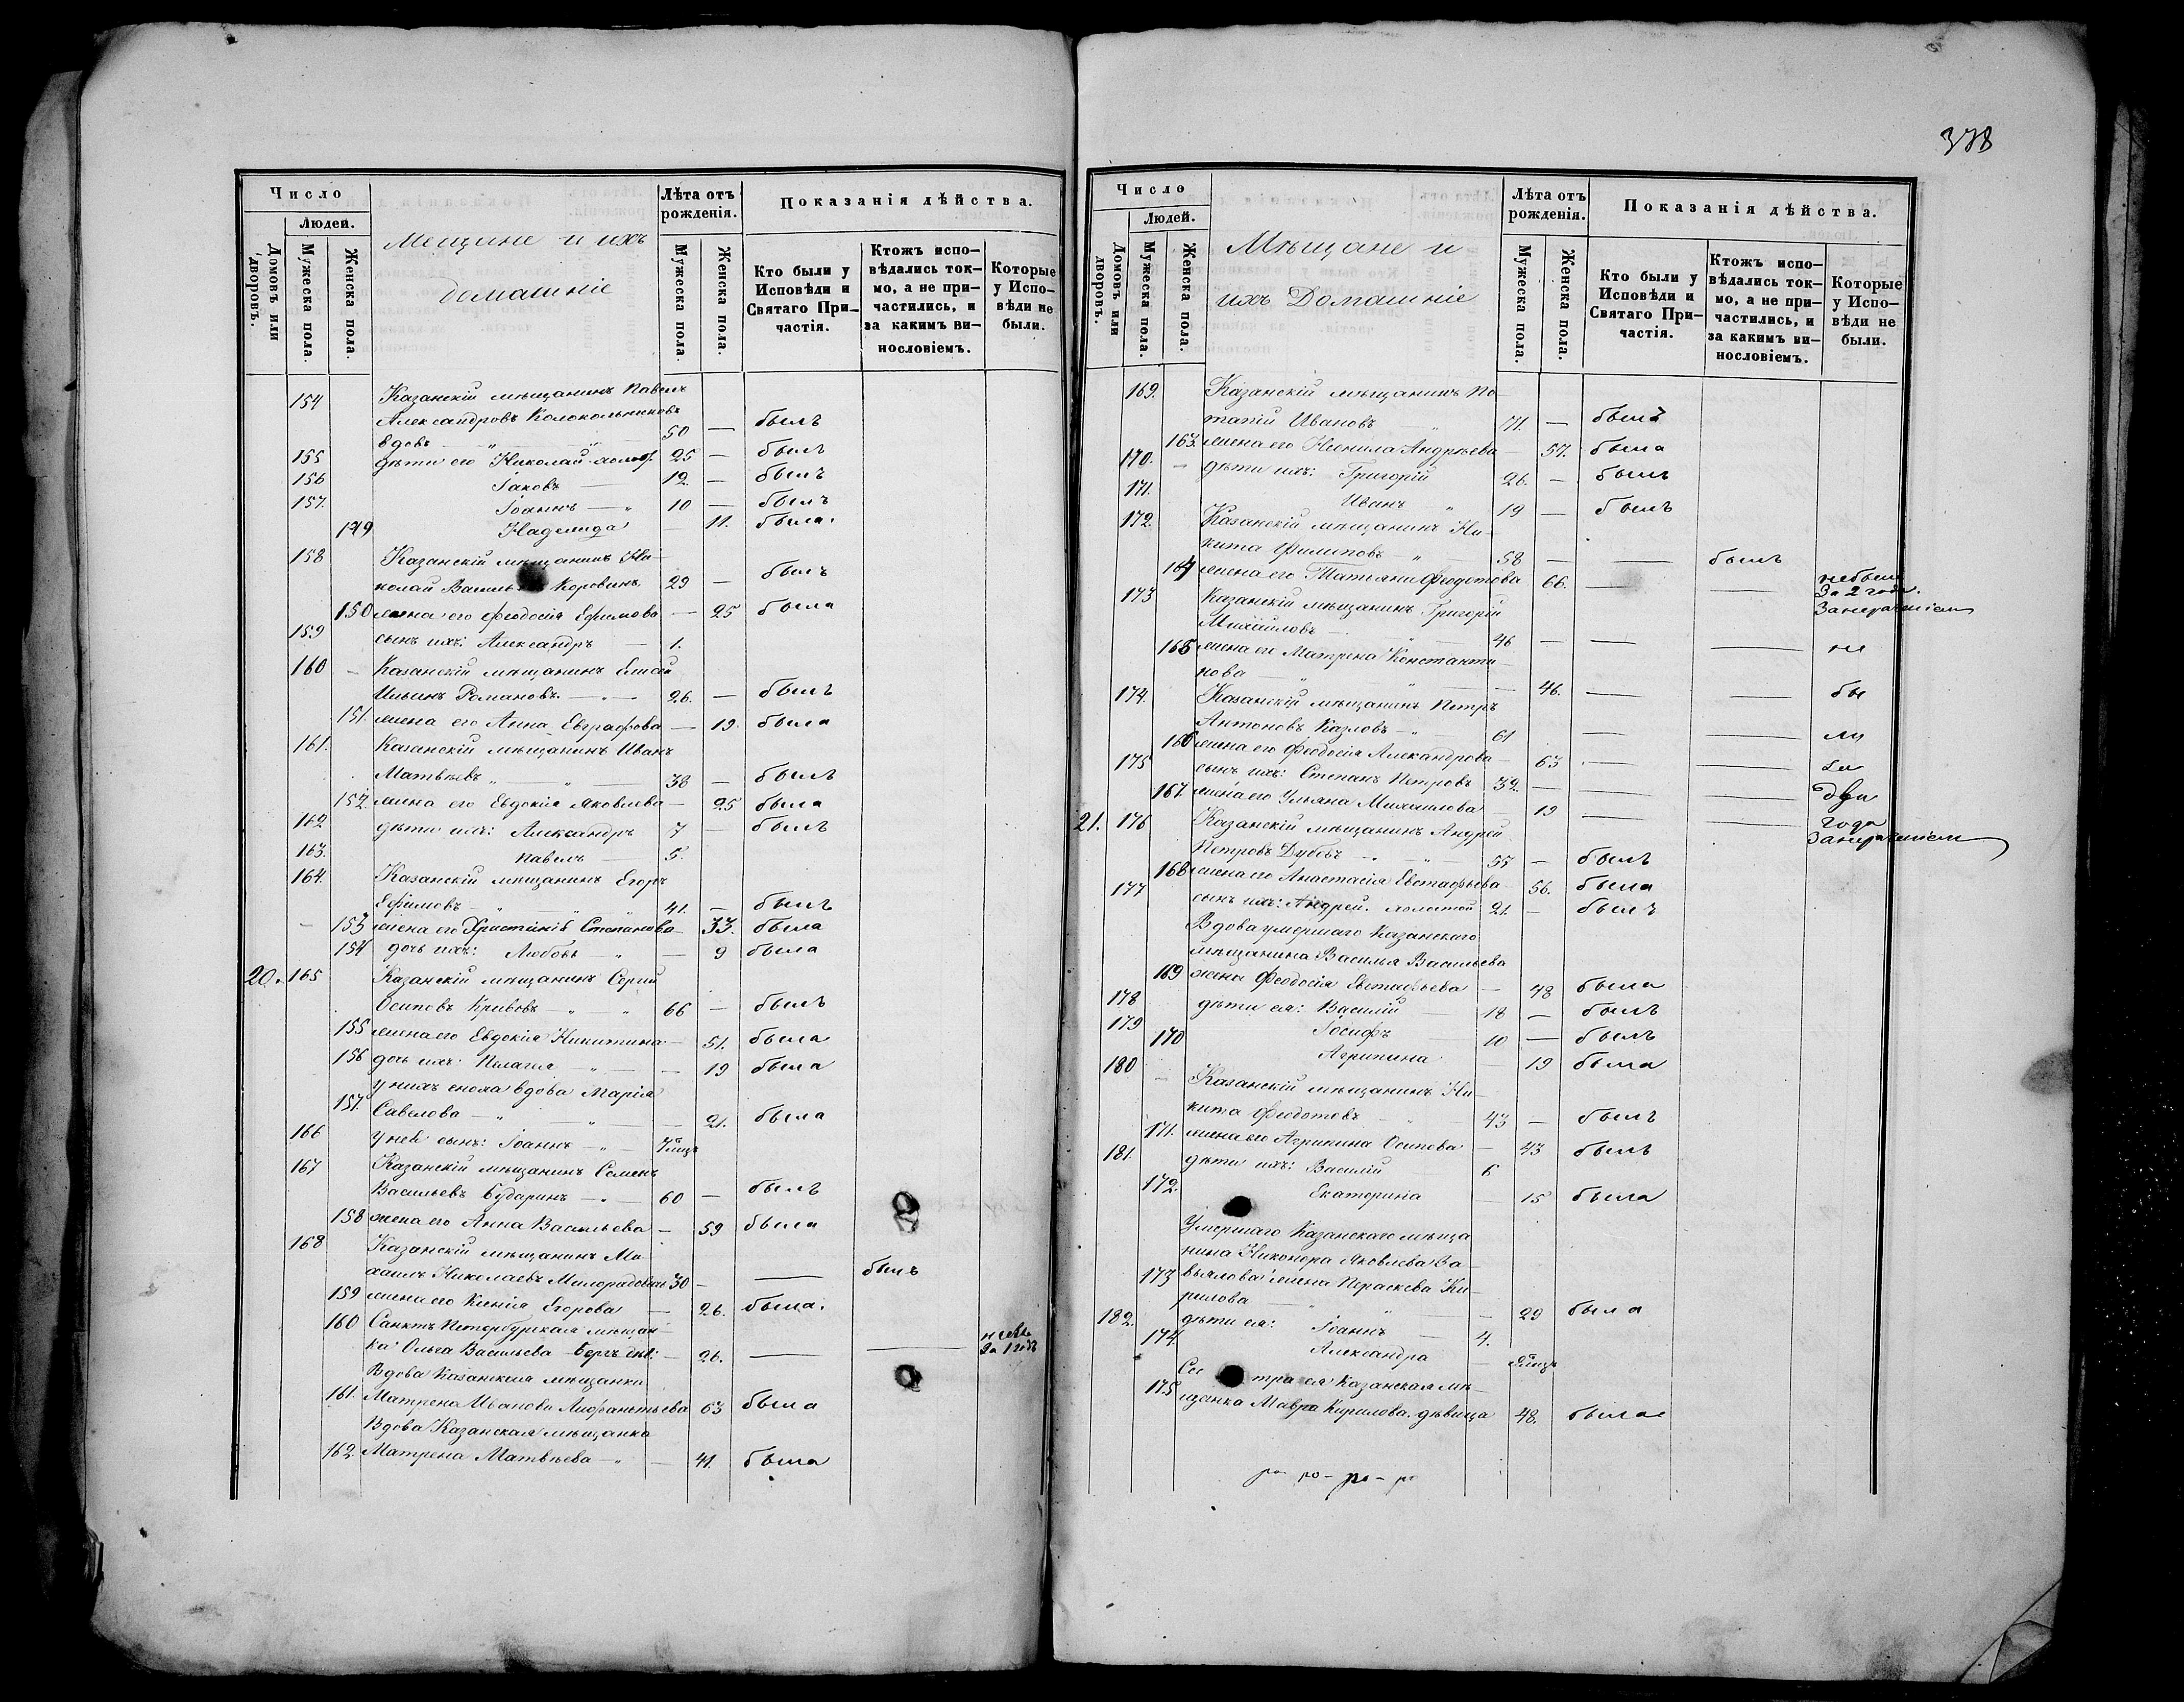 378
Число
Людей.
Домовъ или дворовъ.
Мужеска пола.
Женска пола.
Мещане и ихъ
домашніе
Лѣта отъ рожденія.
Мужеска пола.
Женска пола.
Показанія дѣйства.
Кто были у Исповѣди и Святаго При-частія.
Ктожъ испо-вѣдались ток-мо, а не при-частились, и за какимъ ви-нословіемъ.
Которые у Испо-вѣди не были.
154 Казанскій мѣщанинъ Павелъ
Александровъ Колокольниковъ
вдовъ — " — 50 — былъ
155 дѣти его Николай 25 — былъ
156 Іаковъ — 12. — былъ
157. Іоаннъ — " 10 — былъ
149 Надежда — 11. была.
158 Казанскій мѣщанинъ Ни-
колай Василь Коровинъ 29 — былъ
150 жена его Феодосія Ефимова — 25 была
159 сынъ ихъ: Александръ — 1.
160 — Казанскій мѣщанинъ
Ильинъ Романовъ — " — 26. — былъ
151. жена его Анна Евграфова — 19. была
161. Казанскій мѣщанинъ Иванъ
Матвѣевъ " — " — 38 — былъ
152. жена его Евдокія Яковлева — 25 была
162 дѣти ихъ: Александръ 7 — былъ
163. Павелъ — 5.
164. Казанскій мѣщанинъ Егоръ
Ефимовъ — " " 41. — былъ
— 153 жена его Христинія Степанова — 33. была
154 дочь ихъ: Любовь — " — 9 была
20. 165 Казанскій мѣщанинъ Сергій
Осиповъ Кривовъ — " " 66 — былъ
155 жена его Евдокія Никитина — 51. была
156 дочь ихъ Пелагія — " — 19 была
у нихъ сноха вдова Марія
157. Савелова — " — " — 21. была
166 у неё сынъ: Іоаннъ — "
167 Казанскій мѣщанинъ Семенъ
Васильевъ Бударинъ — " — 60 — былъ
158 жена его Анна Васильева — 59 была
168 Казанскій мѣщанинъ Ми-
хаилъ Николаевъ Милорадовъ 30 — — былъ
159 жена его Ксенія Егорова — 26. была.
160 Санктъ Петербургская мѣщан-
ка Ольга Васильева — 26. — — за 1 годъ
Вдова Казанская мѣщанка
161. Матрена Иванова 63 была
Вдова Казанская мѣщанка
162. Матрена Матвѣева — " — 41. была
Число
Людей.
Домовъ или дворовъ.
Мужеска пола.
Женска пола.
Мѣщане и
ихъ Домашніе
Лѣта отъ рожденія.
Мужеска пола.
Женска пола.
Показанія дѣйства.
Кто были у Исповѣди и Святаго При-частія.
Ктожъ испо-вѣдались ток-мо, а не при-частились, и за какимъ ви-нословіемъ.
Которые у Испо-вѣди не были.
169. Казанскій мѣщанинъ По-
тапій Ивановъ — " 71. — былъ
163. жена его Неонила Андрѣева — 57. была
170. — дѣти ихъ: Григорій 26. — былъ
171. Иванъ " 19 — былъ
172. Казанскій мѣщанинъ Ни-
кита Филиповъ — " — 58 — — былъ
164 жена его Татьяна Феодотова 66. — — не были
За 2 года.
173 Казанскій мѣщанинъ Григорій
Михайловъ — " — 46 — — — не
165 жена его Матрена Константи-
нова — " — " — 46. — — бы
174. Казанскій мѣщанинъ Петръ
Антоновъ Казловъ — " — 61 — — ли
166 жена его Феодосія Александрова — 63 — — за
175 сынъ ихъ: Степанъ Петровъ 32. — — — два
167. жена его Ульяна Михаилова 19 — — года
21. 176 Казанскій мѣщанинъ Андрей
Петровъ — " — " — 55 — былъ
168 жена его Анастасія Евстафьева 56. была
177 сынъ ихъ: Андрей. холостой 21. — былъ
Вдова умершаго Казанскаго
мѣщанина Василья Васильева
169 жена Феодосія Евстафьева — 48 была
178 дѣти ея: Василій — 18 — былъ
179 Іосифъ — 10 — былъ
170 Агрипина — 19 была
180 — Казанскій мѣщанинъ Ни-
кита Феодотовъ — " 43 — былъ
171. жена его Агрипина Осипова — 43 былъ
181. дѣти ихъ: Василій — 6
172. Екатерина — 15 была
Умершаго Казанскаго мѣща-
нина Никонора Яковлева За-
173 вьялова жена Параскева Ки-
рилова — " — " — 29 была
182. дѣти ея: Іоаннъ — 4.
174. Александра —
Сес тра ея Казанская мѣ-
175 щанка Мавра Кирилова. дѣвица 48. была